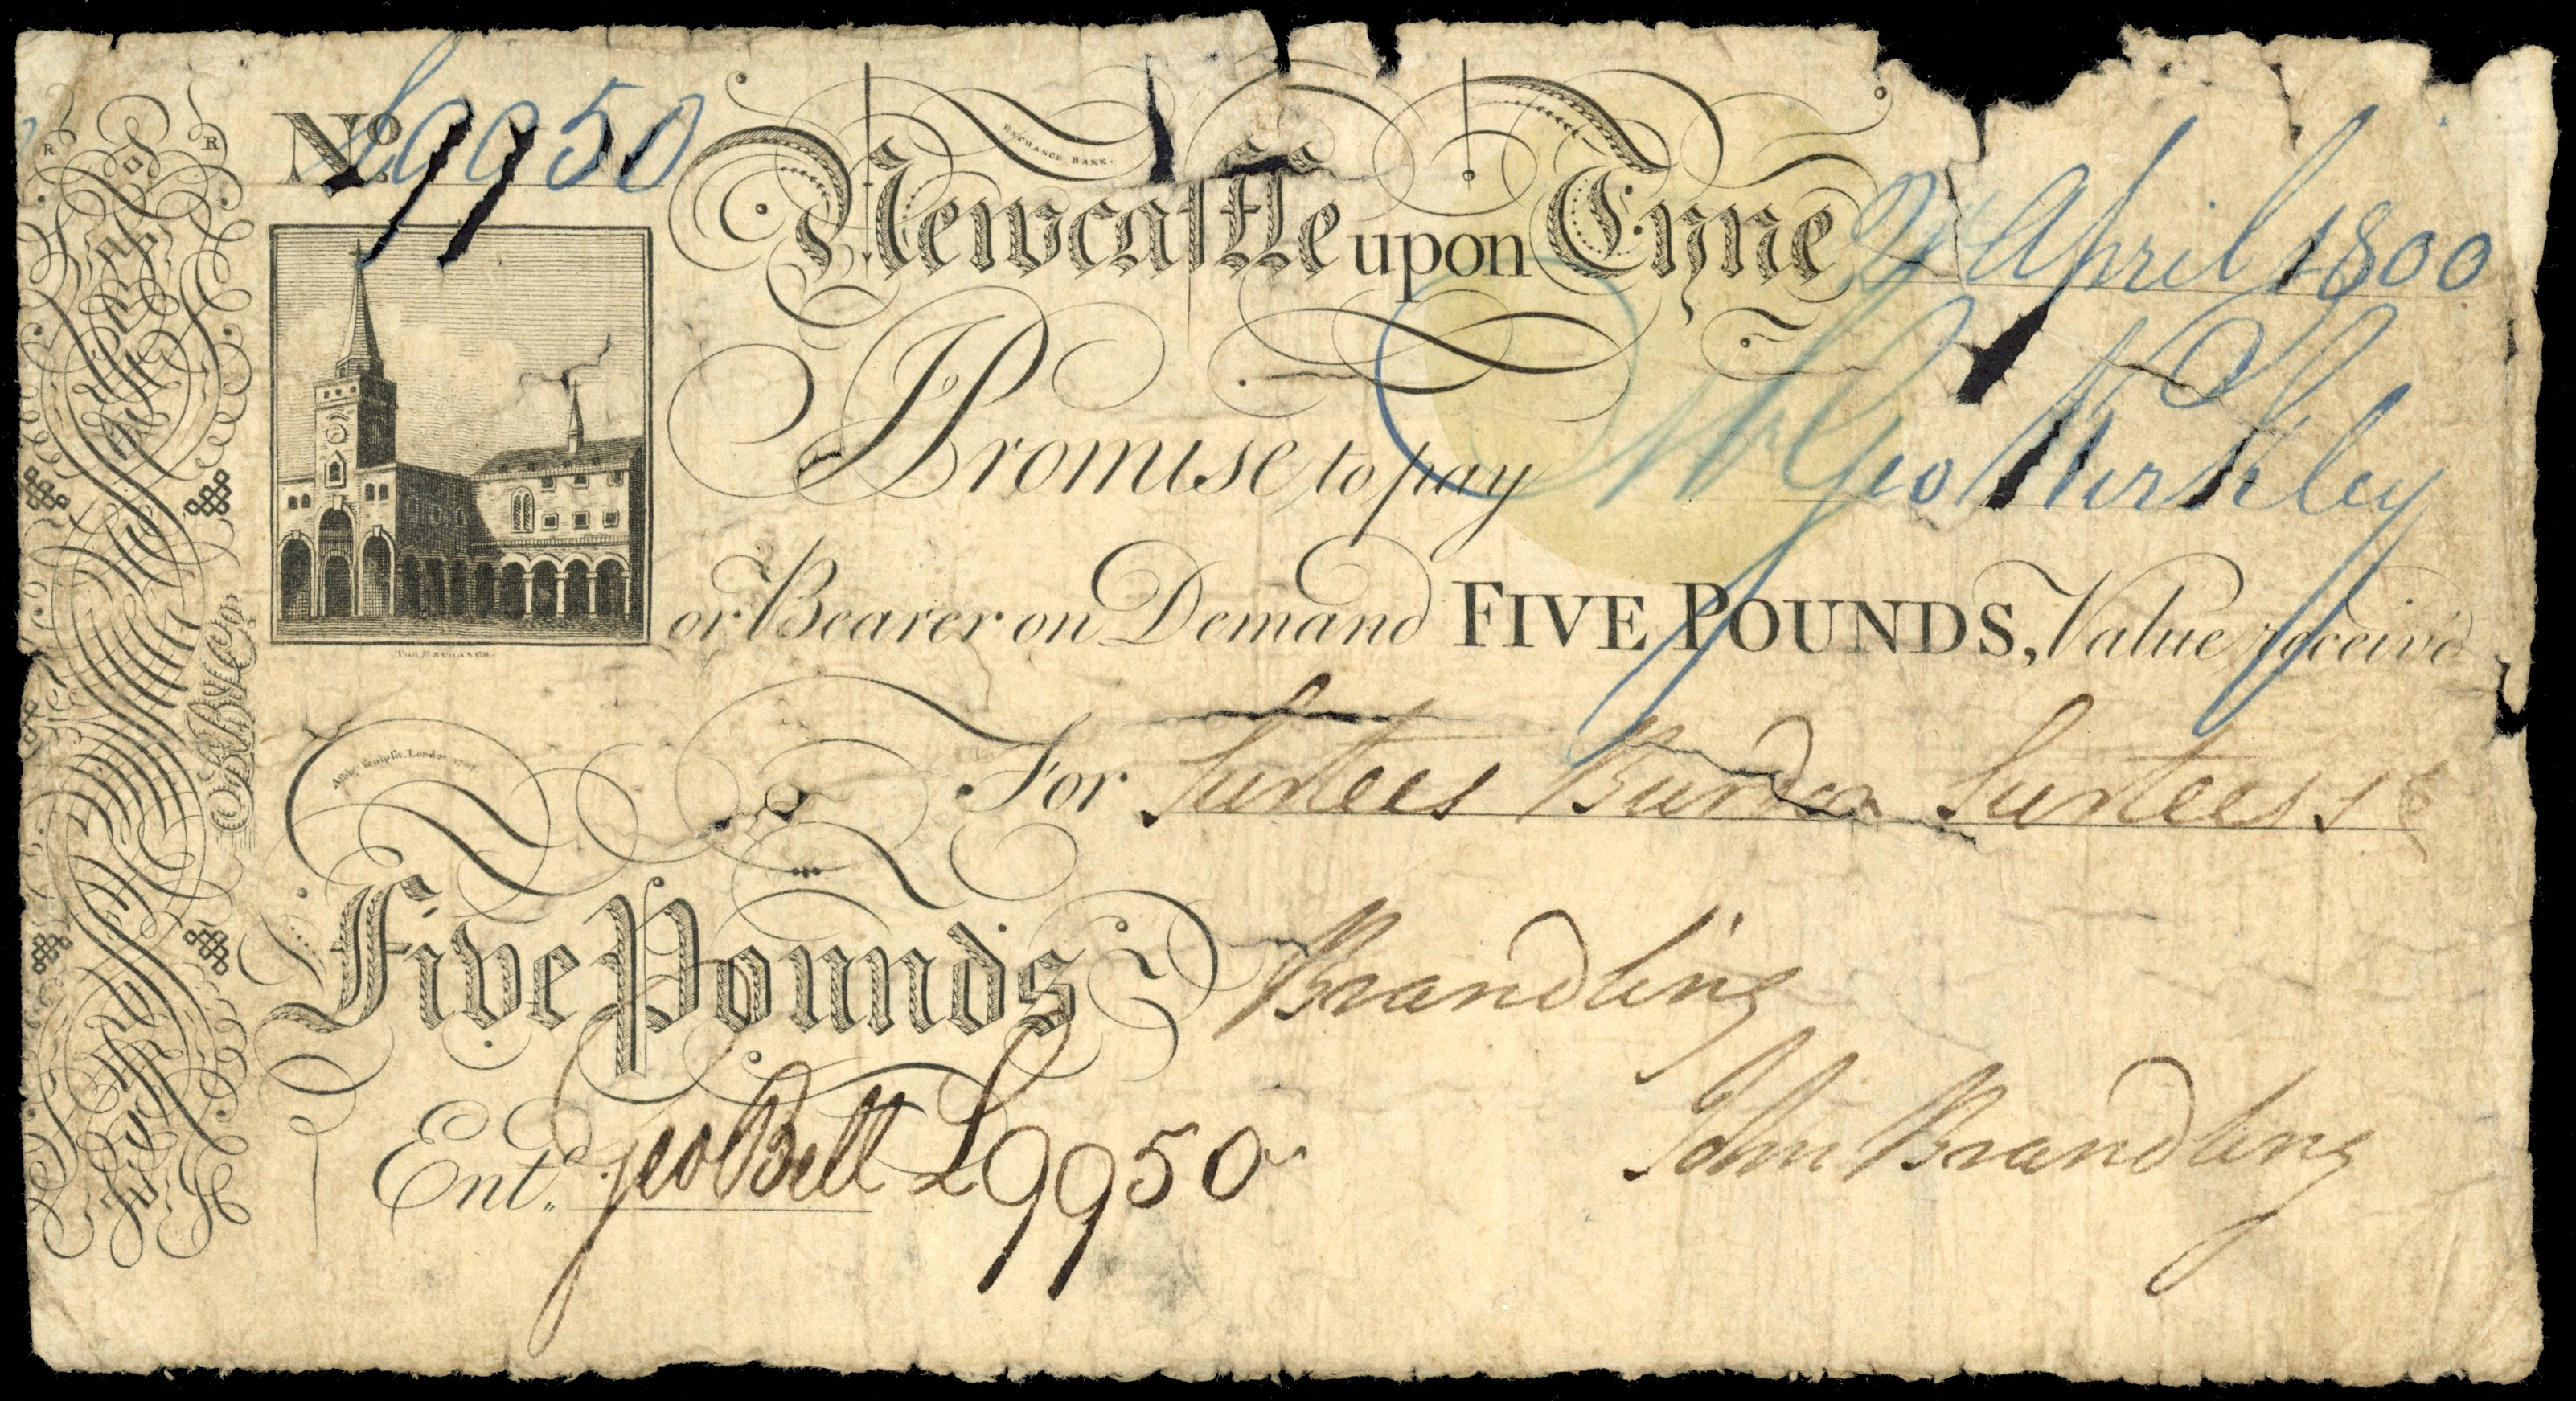 No. L9950
EXCHANGE BANK.
Newcastle upon Tyne April 1800
I Promise to pay Mr Geo Kirkley
or Bearer on Demand FIVE POUNDS, Value receiv'd
THE EXCHANGE.
For Surtees Burdon Surtees &
Ashby Sculpsit London
Five Pounds Brandling
Entd. Geo Bell L9950
John Brandling